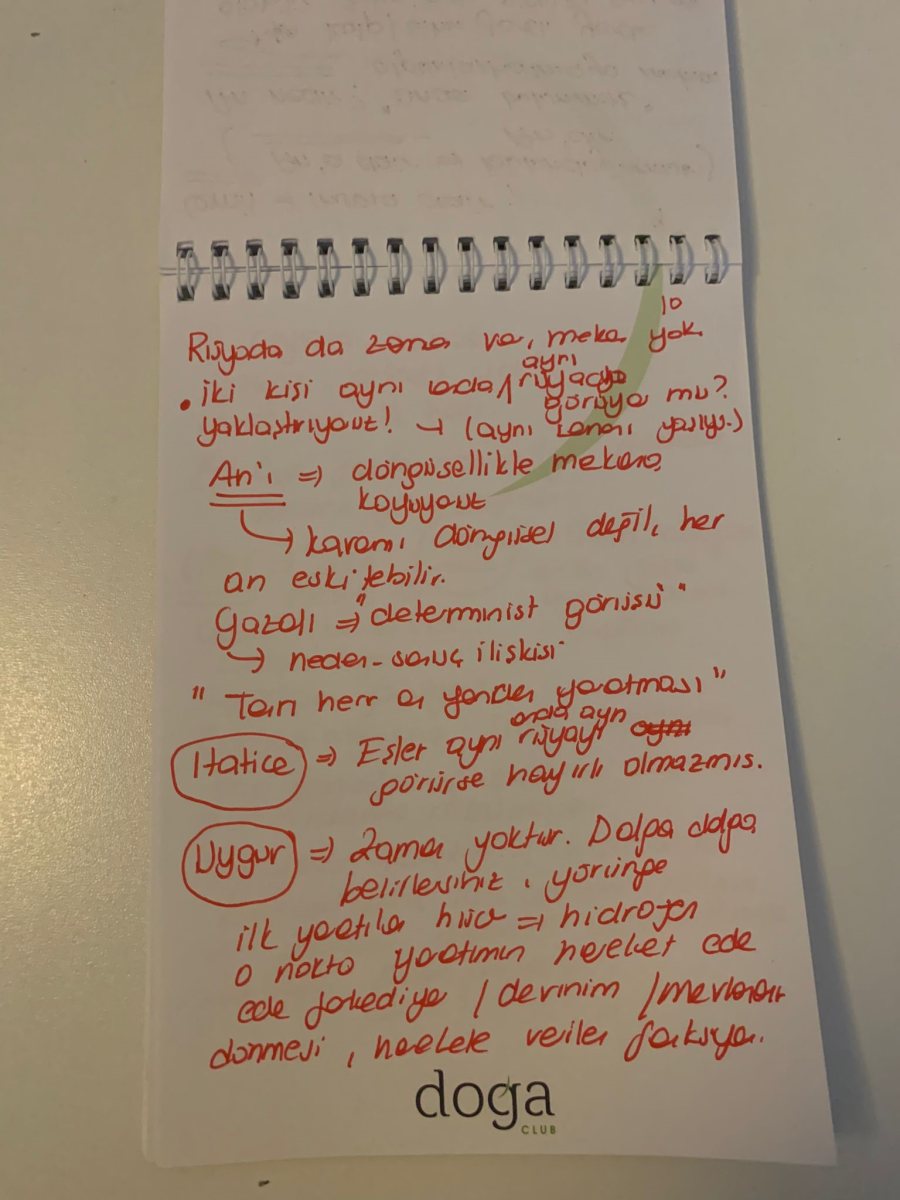 10
Rüyada da zama va, meka yok.
• iki kişi aynı anda / aynı rüyayı
görüyo mu?
yaklaştırıyoruz! → (aynı zamanı yaşıyo.)
An'ı ⇒ döngüsellikle mekana
koyuyoruz
↳ kavramı döngüsel değil, her
an eskiyebilir.
Gazali ⇒ "determinist görüşü"
↳ neden-sonuç ilişkisi
" Tanrı her a yeniden yaratması "
Hatice ⇒ Eşler aynı anda ayn rüyayı aynı
görürse hayırlı olmazmış.
Uygur ⇒ Zama yoktur. Dalga dalga
belirlersiniz, yörünge
ilk yaratıla hüc ⇒ hidrojen
o nokta yaratımın hareket ede
ede farkediyo / devinim / mevlananın
dönmesi, hareketle veriler farksıya.
doğa
CLUB